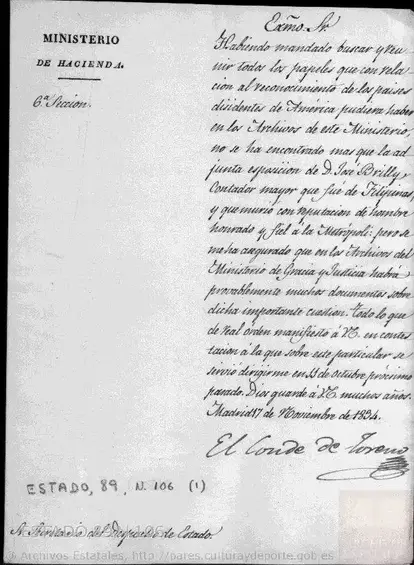 MINISTERIO
DE HACIENDA.
6ª Seccion.
Exmo. Sr.
Habiendo mandado buscar y reu-
nir todos los papeles que con rela-
cion al reconocimiento de los paises
disidentes de América pudiera haber
en los Archivos de este Ministerio,
no se ha encontrado mas que la ad-
junta esposicion de D. José Brilly
Contador mayor que fue de Filipinas,
y que murió con reputacion de hombre
honrado y fiel á la Metrópoli: pero se
me ha asegurado que en los Archivos del
Ministerio de Gracia y Justicia habrá
provablemente muchos documentos sobre
dicha importante cuestion. Todo lo que
de Real orden manifiesto á V.E. en contes-
tacion á la que sobre este particular se
sirvió dirigirme en 31 de octubre próximo
pasado. Dios guarde á V.E. muchos años.
Madrid 17 de Noviembre de 1834.
El Conde de Toreno
ESTADO, 89, N. 106 (1)
Sr. Secretario del Despacho de Estado.
© Archivos Estatales, http://pares.culturaydeporte.gob.es